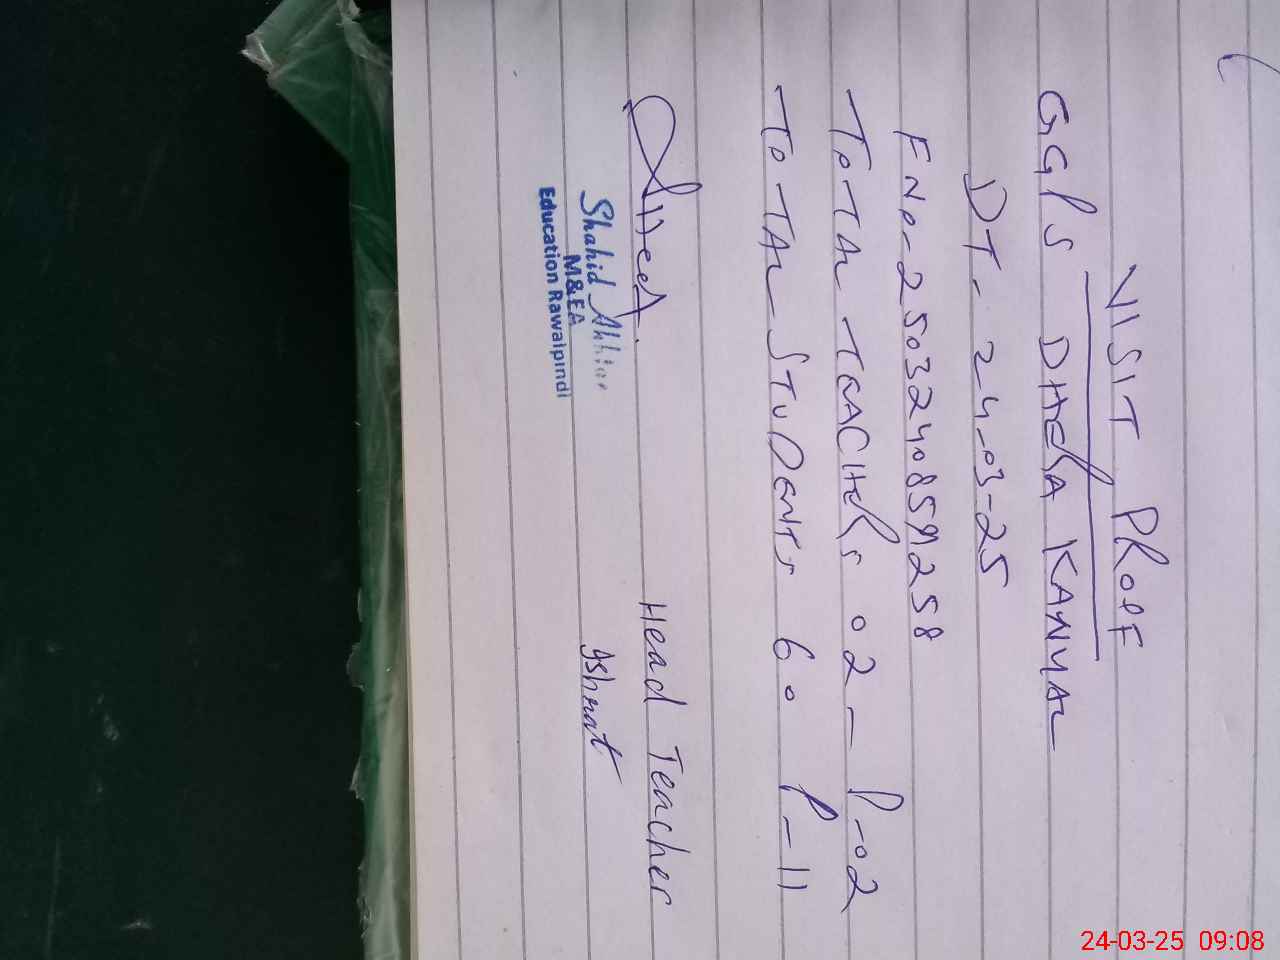 VISIT PROOF
GGPS DHERA KANYAL
DT- 24-03-25
FNO-25032408591258
TOTAL TEACHERS 02 - P-02
TOTAL STUDENTS 60 P-11
Head Teacher
Ishrat
Shahid Akhtar
M&EA
Education Rawalpindi
24-03-25 09:08